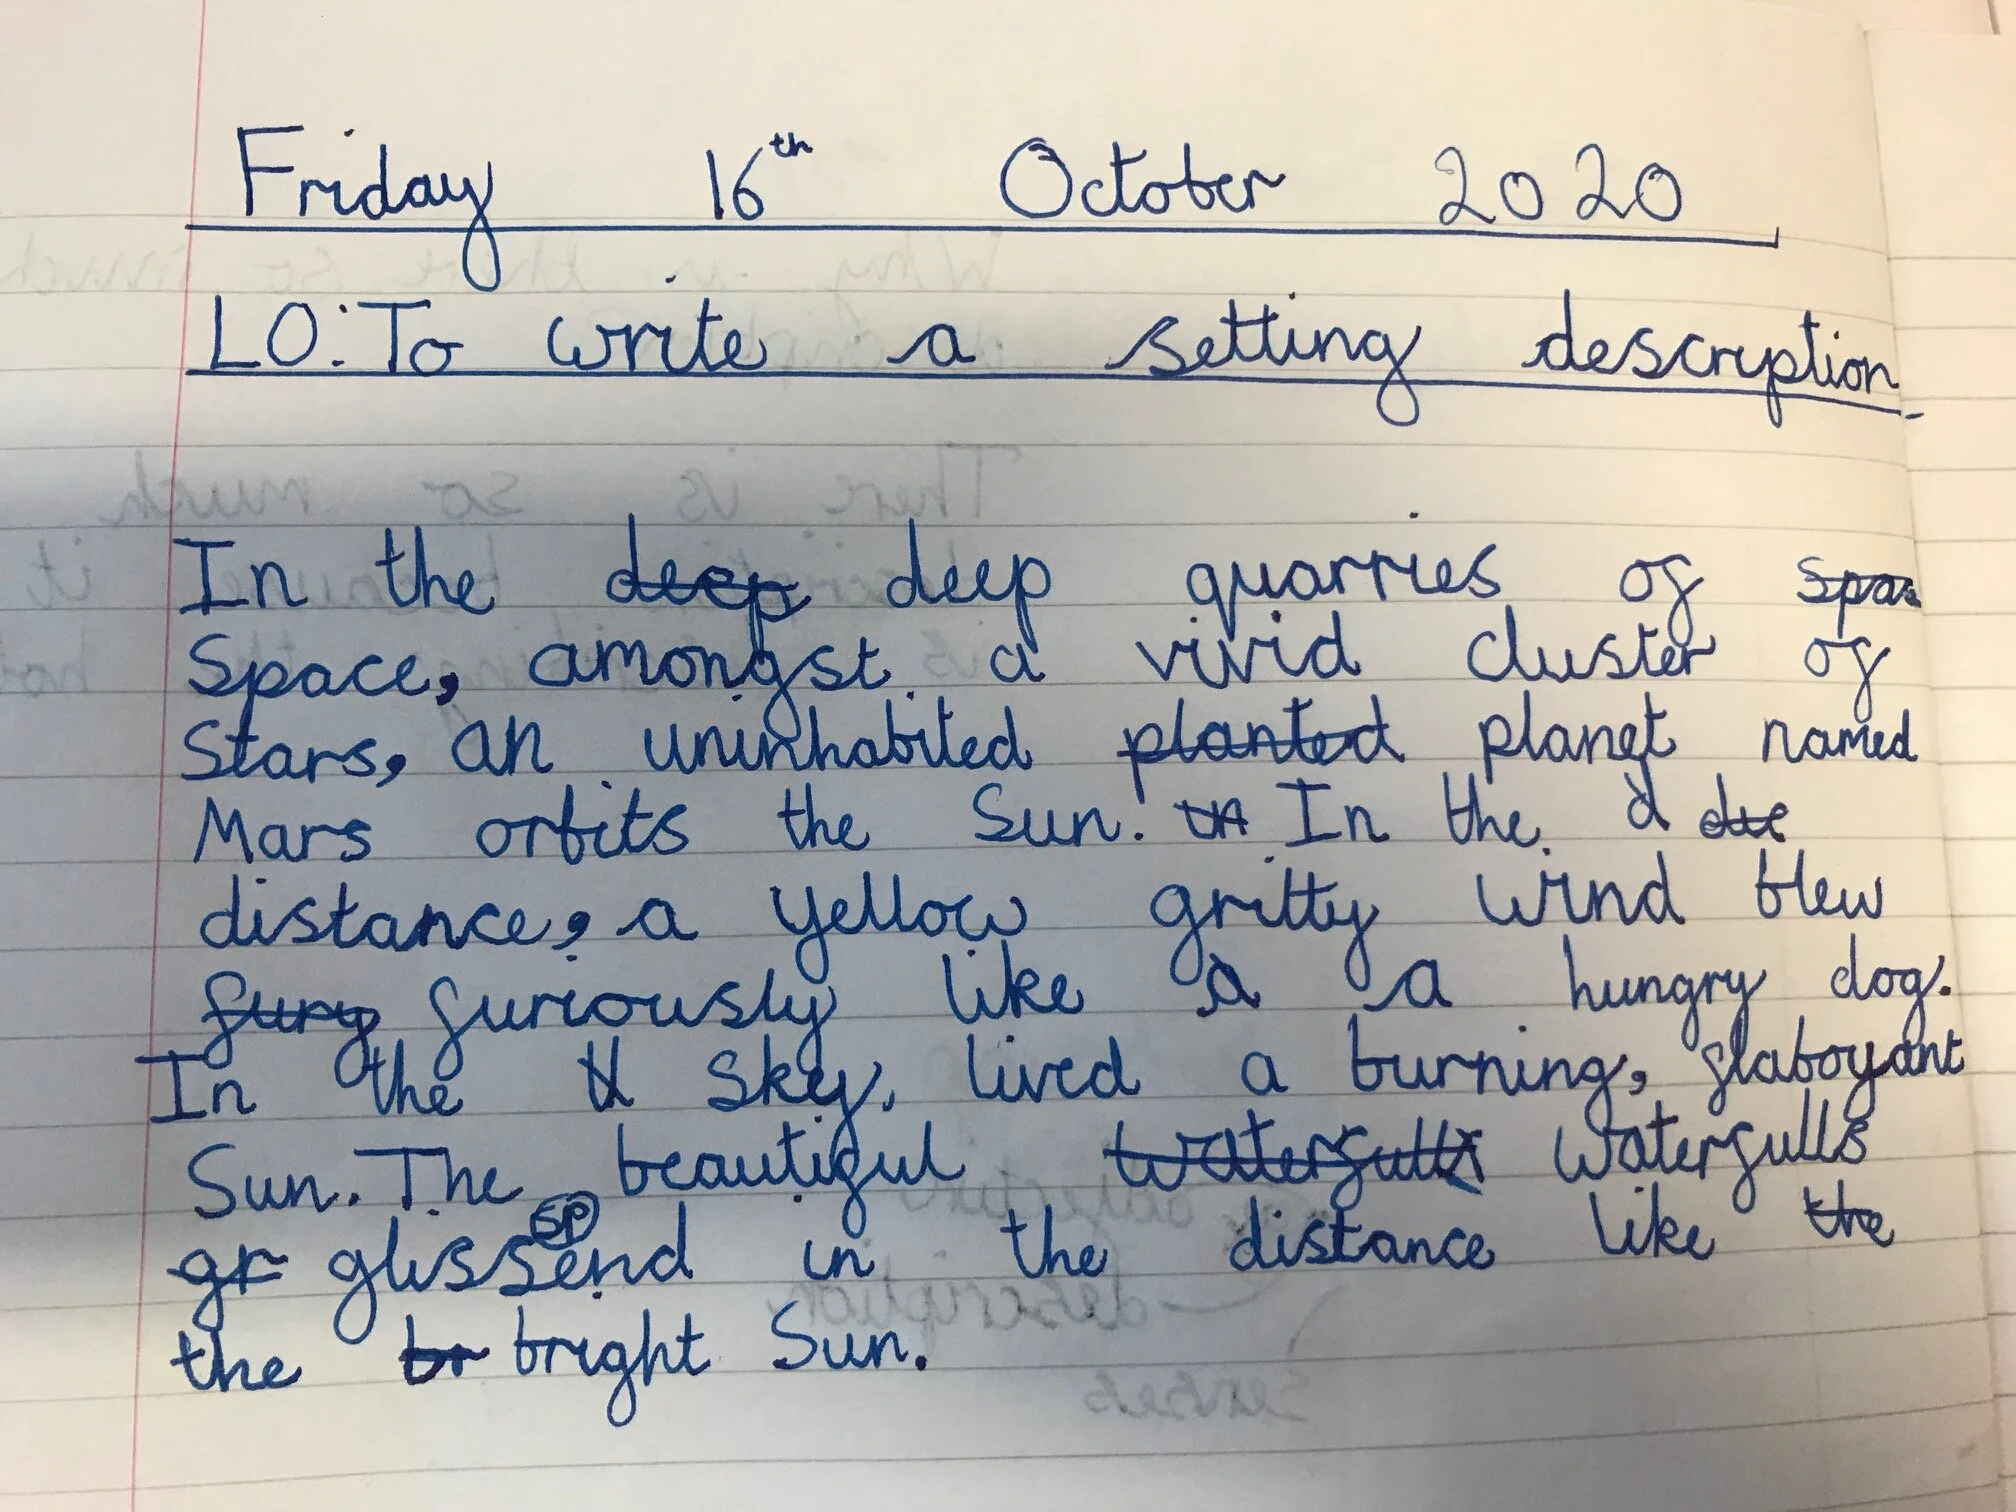 Friday 16th October 2020
LO: To write a setting description.
In the deep deep quarries of spa
Space, amongst a vivid cluster of
Stars, an uninhabited planted planet named
Mars orbits the Sun. In In the d
distance, a yellow gritty wind blew
fury furiously like a a hungry dog.
In the sky, lived a burning, flaboyant
Sun. The beautiful waterfulls waterfulls
SP
gr glissend in the distance like the
the br bright Sun.